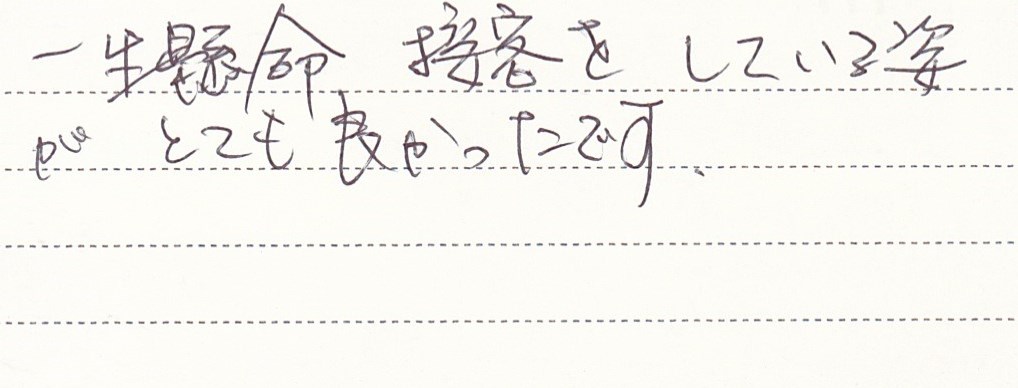 一生懸命 接客を している姿
が とても 良かったです.